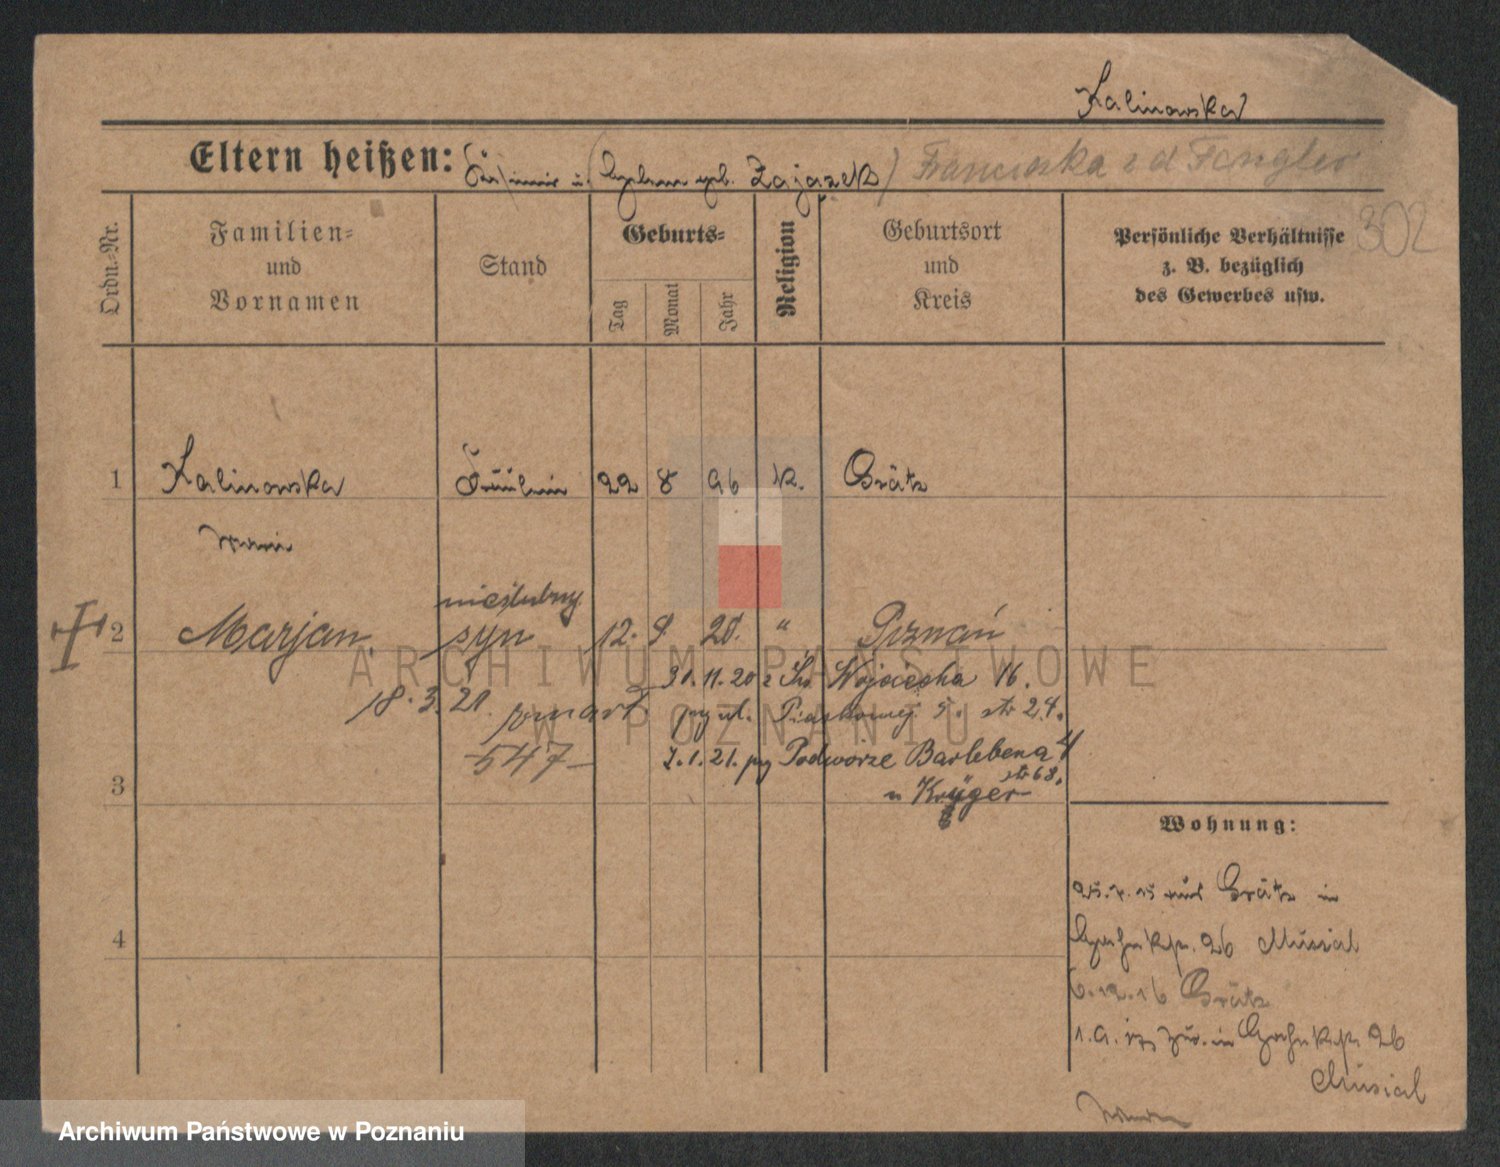 Kalinowska
Eltern heißen: u. geb. Zajązek) Franciszka z d Fengler
302
Ordn.-Nr.
Familien- und Vornamen
Stand
Geburts-
Tag
Monat
Jahr
Religion
Geburtsort und Kreis
Persönliche Verhältnisse z. B. bezüglich des Gewerbes usw.
1 Kalinowska Fräulein 22 8 96 k. Grätz
nieślubny
2 Marjan. syn 12. 9. 20. " Poznań
31.11.20 z Św. Wojciecha 16.
18.3.21. przy ul. Piaskowej 5. str 24.
547 7.1.21. przy Podwórze Barlebena 4
str 68.
3 u Krüger
Wohnung:
25.7.15 aus Grätz in
4
26 Musial
6.12.16 Grätz
1.9. zur. in 26
Musial
ARCHIWUM PAŃSTWOWE
W POZNANIU
Archiwum Państwowe w Poznaniu